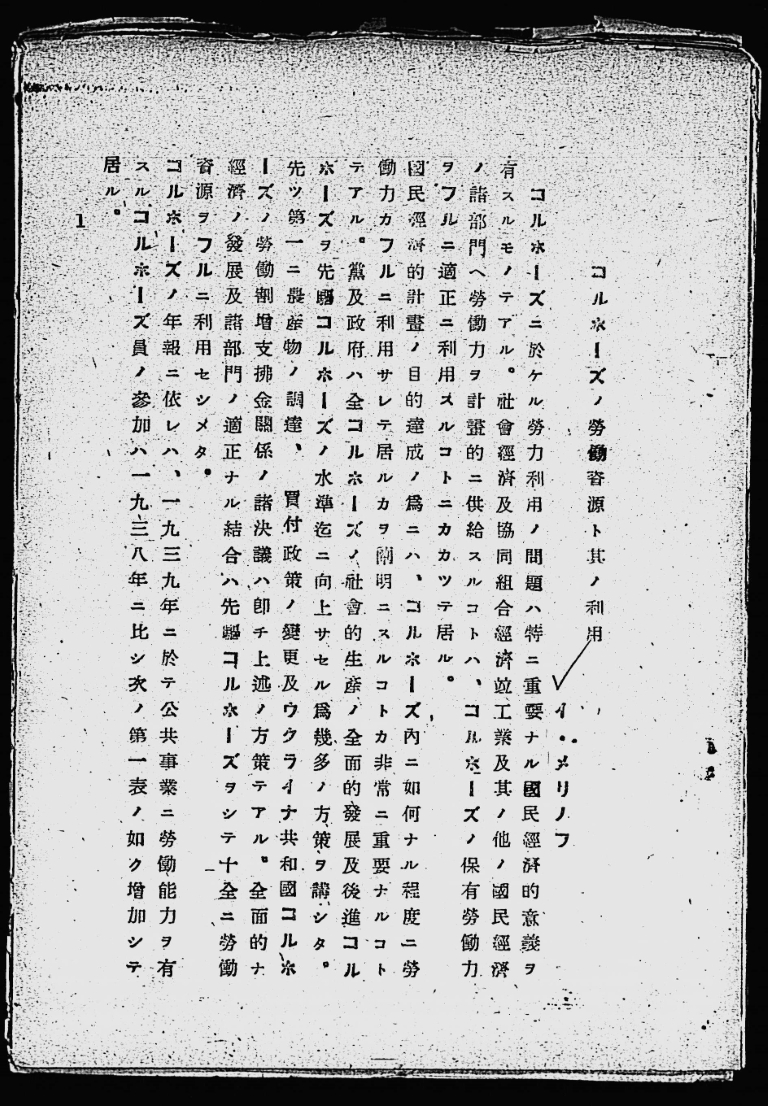 コルホーズノ勞働資源ト其ノ利用
イ・メリノフ
コルホーズニ於ケル勞力利用ノ問題ハ特ニ重要ナル國民經濟的意義ヲ
有スルモノテアル。社會經濟及協同組合經濟竝工業及其ノ他ノ國民經濟
ノ諸部門ヘ勞働力ヲ計畫的ニ供給スルコトハ、コルホーズノ保有勞働力
ヲフルニ適正ニ利用スルコトニカカツテ居ル。
國民經濟的計畫ノ目的達成ノ爲ニハ、コルホーズ內ニ如何ナル程度ニ勞
働力カフルニ利用サレテ居ルカヲ闡明ニスルコトカ非常ニ重要ナルコト
テアル。黨及政府ハ全コルホーズノ社會的生産ノ全面的發展及後進コル
ホーズヲ先驅コルホーズノ水準迄ニ向上サセル爲幾多ノ方策ヲ講シタ。
先ツ第一ニ農産物ノ調達、買付政策ノ變更及ウクライナ共和國コルホ
ーズノ勞働割增支拂金關係ノ諸決議ハ卽チ上述ノ方策テアル。全面的ナ
經濟ノ發展及諸部門ノ適正ナル結合ハ先驅コルホーズヲシテ十全ニ勞働
資源ヲフルニ利用セシメタ。
コルホーズノ年報ニ依レハ、一九三九年ニ於テ公共事業ニ勞働能力ヲ有
スルコルホーズ員ノ參加ハ一九三八年ニ比シ次ノ第一表ノ如ク增加シテ
居ル。
1